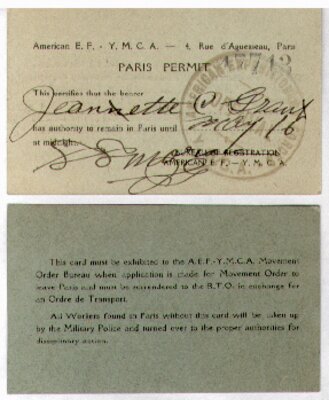 American E. F. - Y. M. C. A. — 4, Rue d'Aguesseau, Paris
PARIS PERMIT
17713
This certifies that the bearer
Jeannette C.
has authority to remain in Paris until May 16
at midnight.
BUREAU OF REGISTRATION
AMERICAN E. F. - Y. M. C. A.
This card must be exhibited to the A.E.F.-Y.M.C.A. Movement
Order Bureau when application is made for Movement Order to
leave Paris and must be surrendered to the R.T.O. in exchange for
an Ordre de Transport.
All Workers found in Paris without this card will be taken up
by the Military Police and turned over to the proper authorities for
disciplinary action.